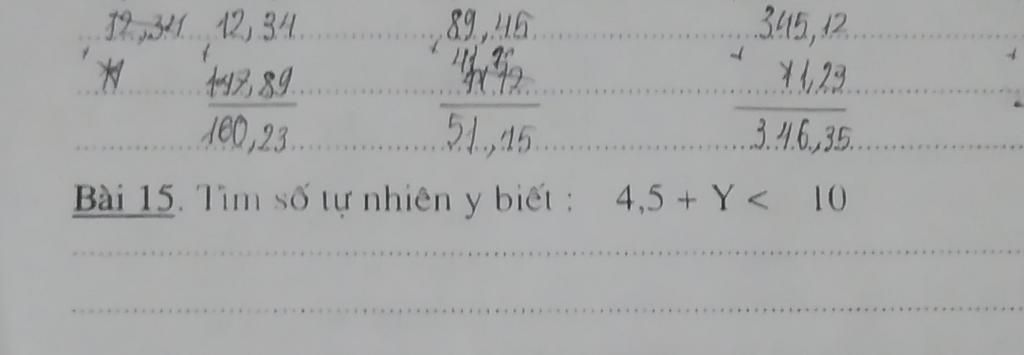 12,34 12,34 89,45 345,12
147,89 1,23
160,23 51,15 346,35
Bài 15. Tìm số tự nhiên y biết : 4,5 + Y < 10